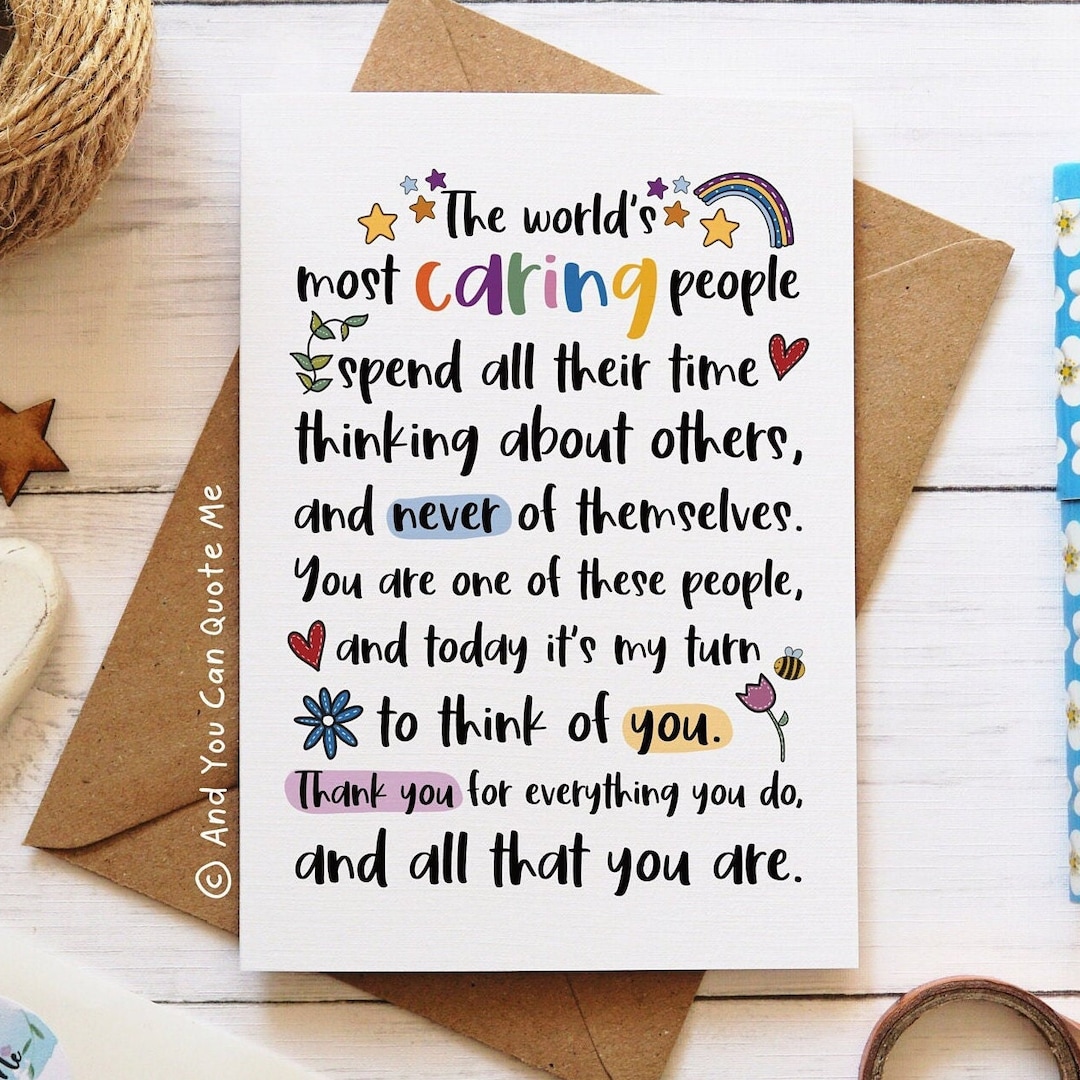 The world's
most caring people
spend all their time
thinking about others,
and never of themselves.
You are one of these people,
and today it's my turn
to think of you.
Thank you for everything you do,
and all that you are.
© And You Can Quote Me